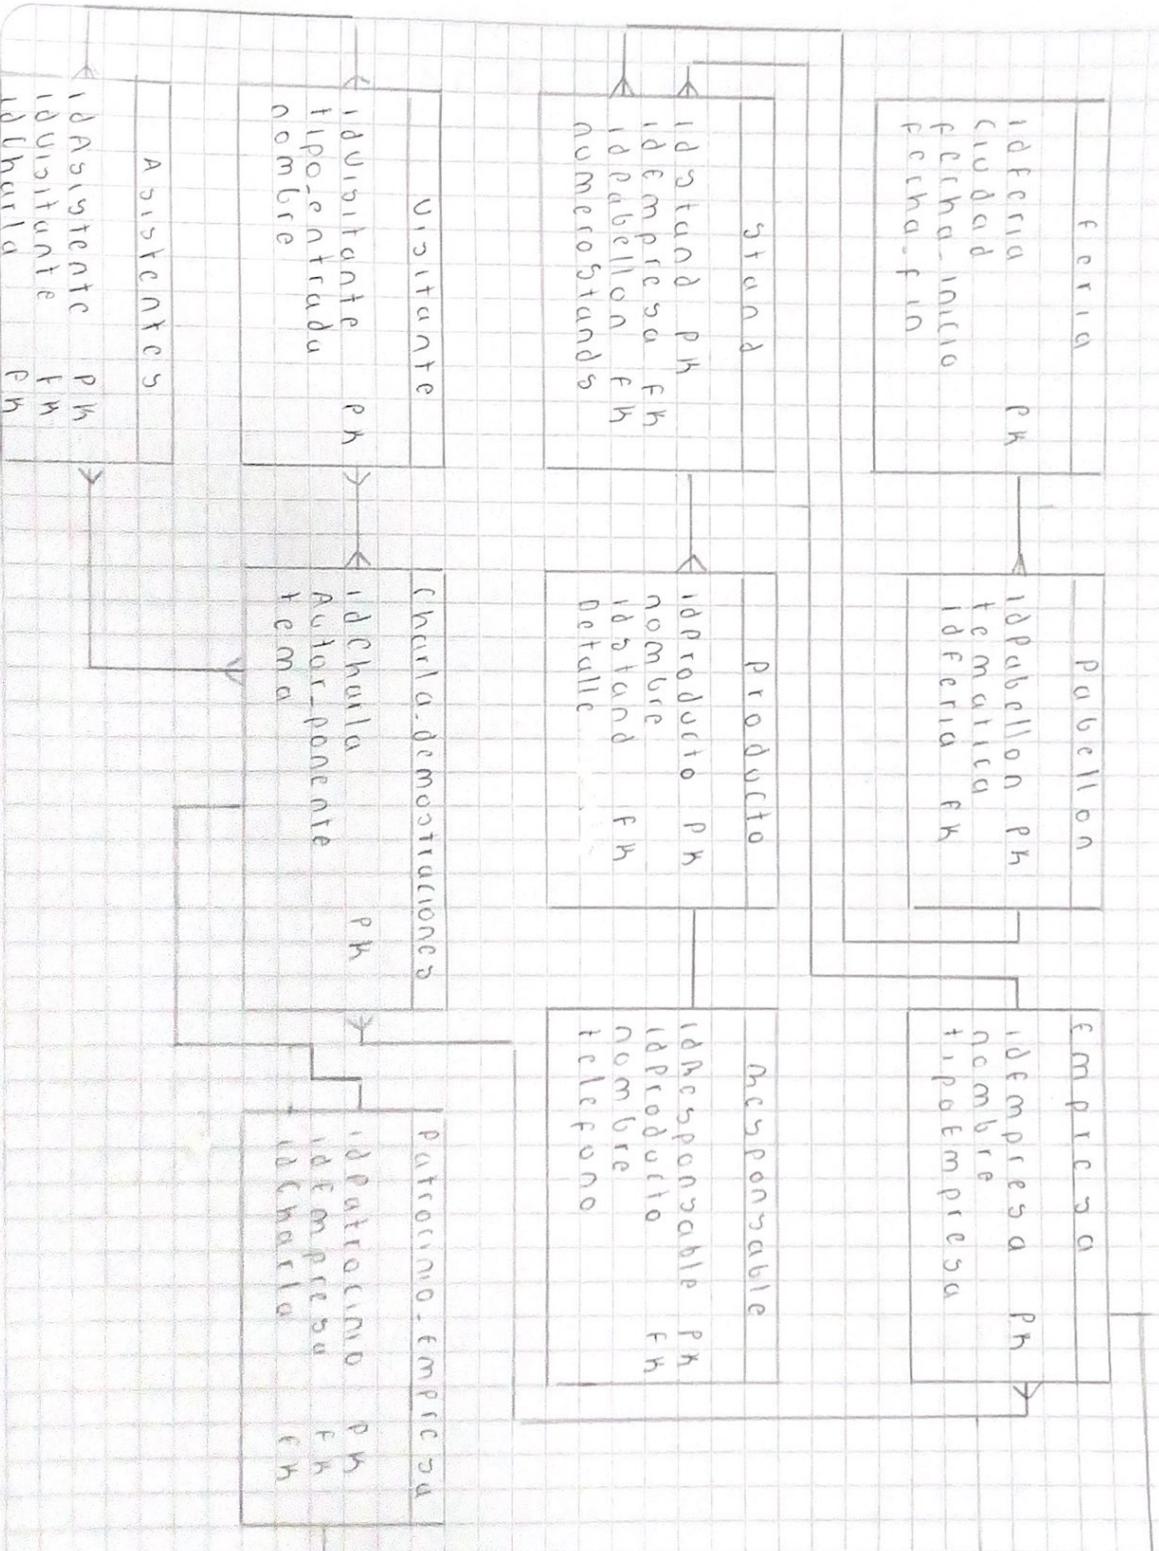 Feria
idFeria PK
Ciudad
Fecha_inicio
Fecha_fin
Pabellon
idPabellon PK
tematica
idFeria FK
Empresa
idEmpresa PK
nombre
tipoEmpresa
Stand
idStand PK
idEmpresa FK
idPabellon FK
numeroStands
Producto
idProducto PK
nombre
idStand FK
Detalle
Responsable
idResponsable PK
idProducto FK
nombre
telefono
Visitante
idVisitante PK
tipo_entrada
nombre
Charla_demostraciones
idCharla PK
Autor_ponente
tema
Patrocinio_Empresa
idPatrocinio PK
idEmpresa FK
idCharla FK
Asistentes
idAsistente PK
idVisitante FK
idCharla FK